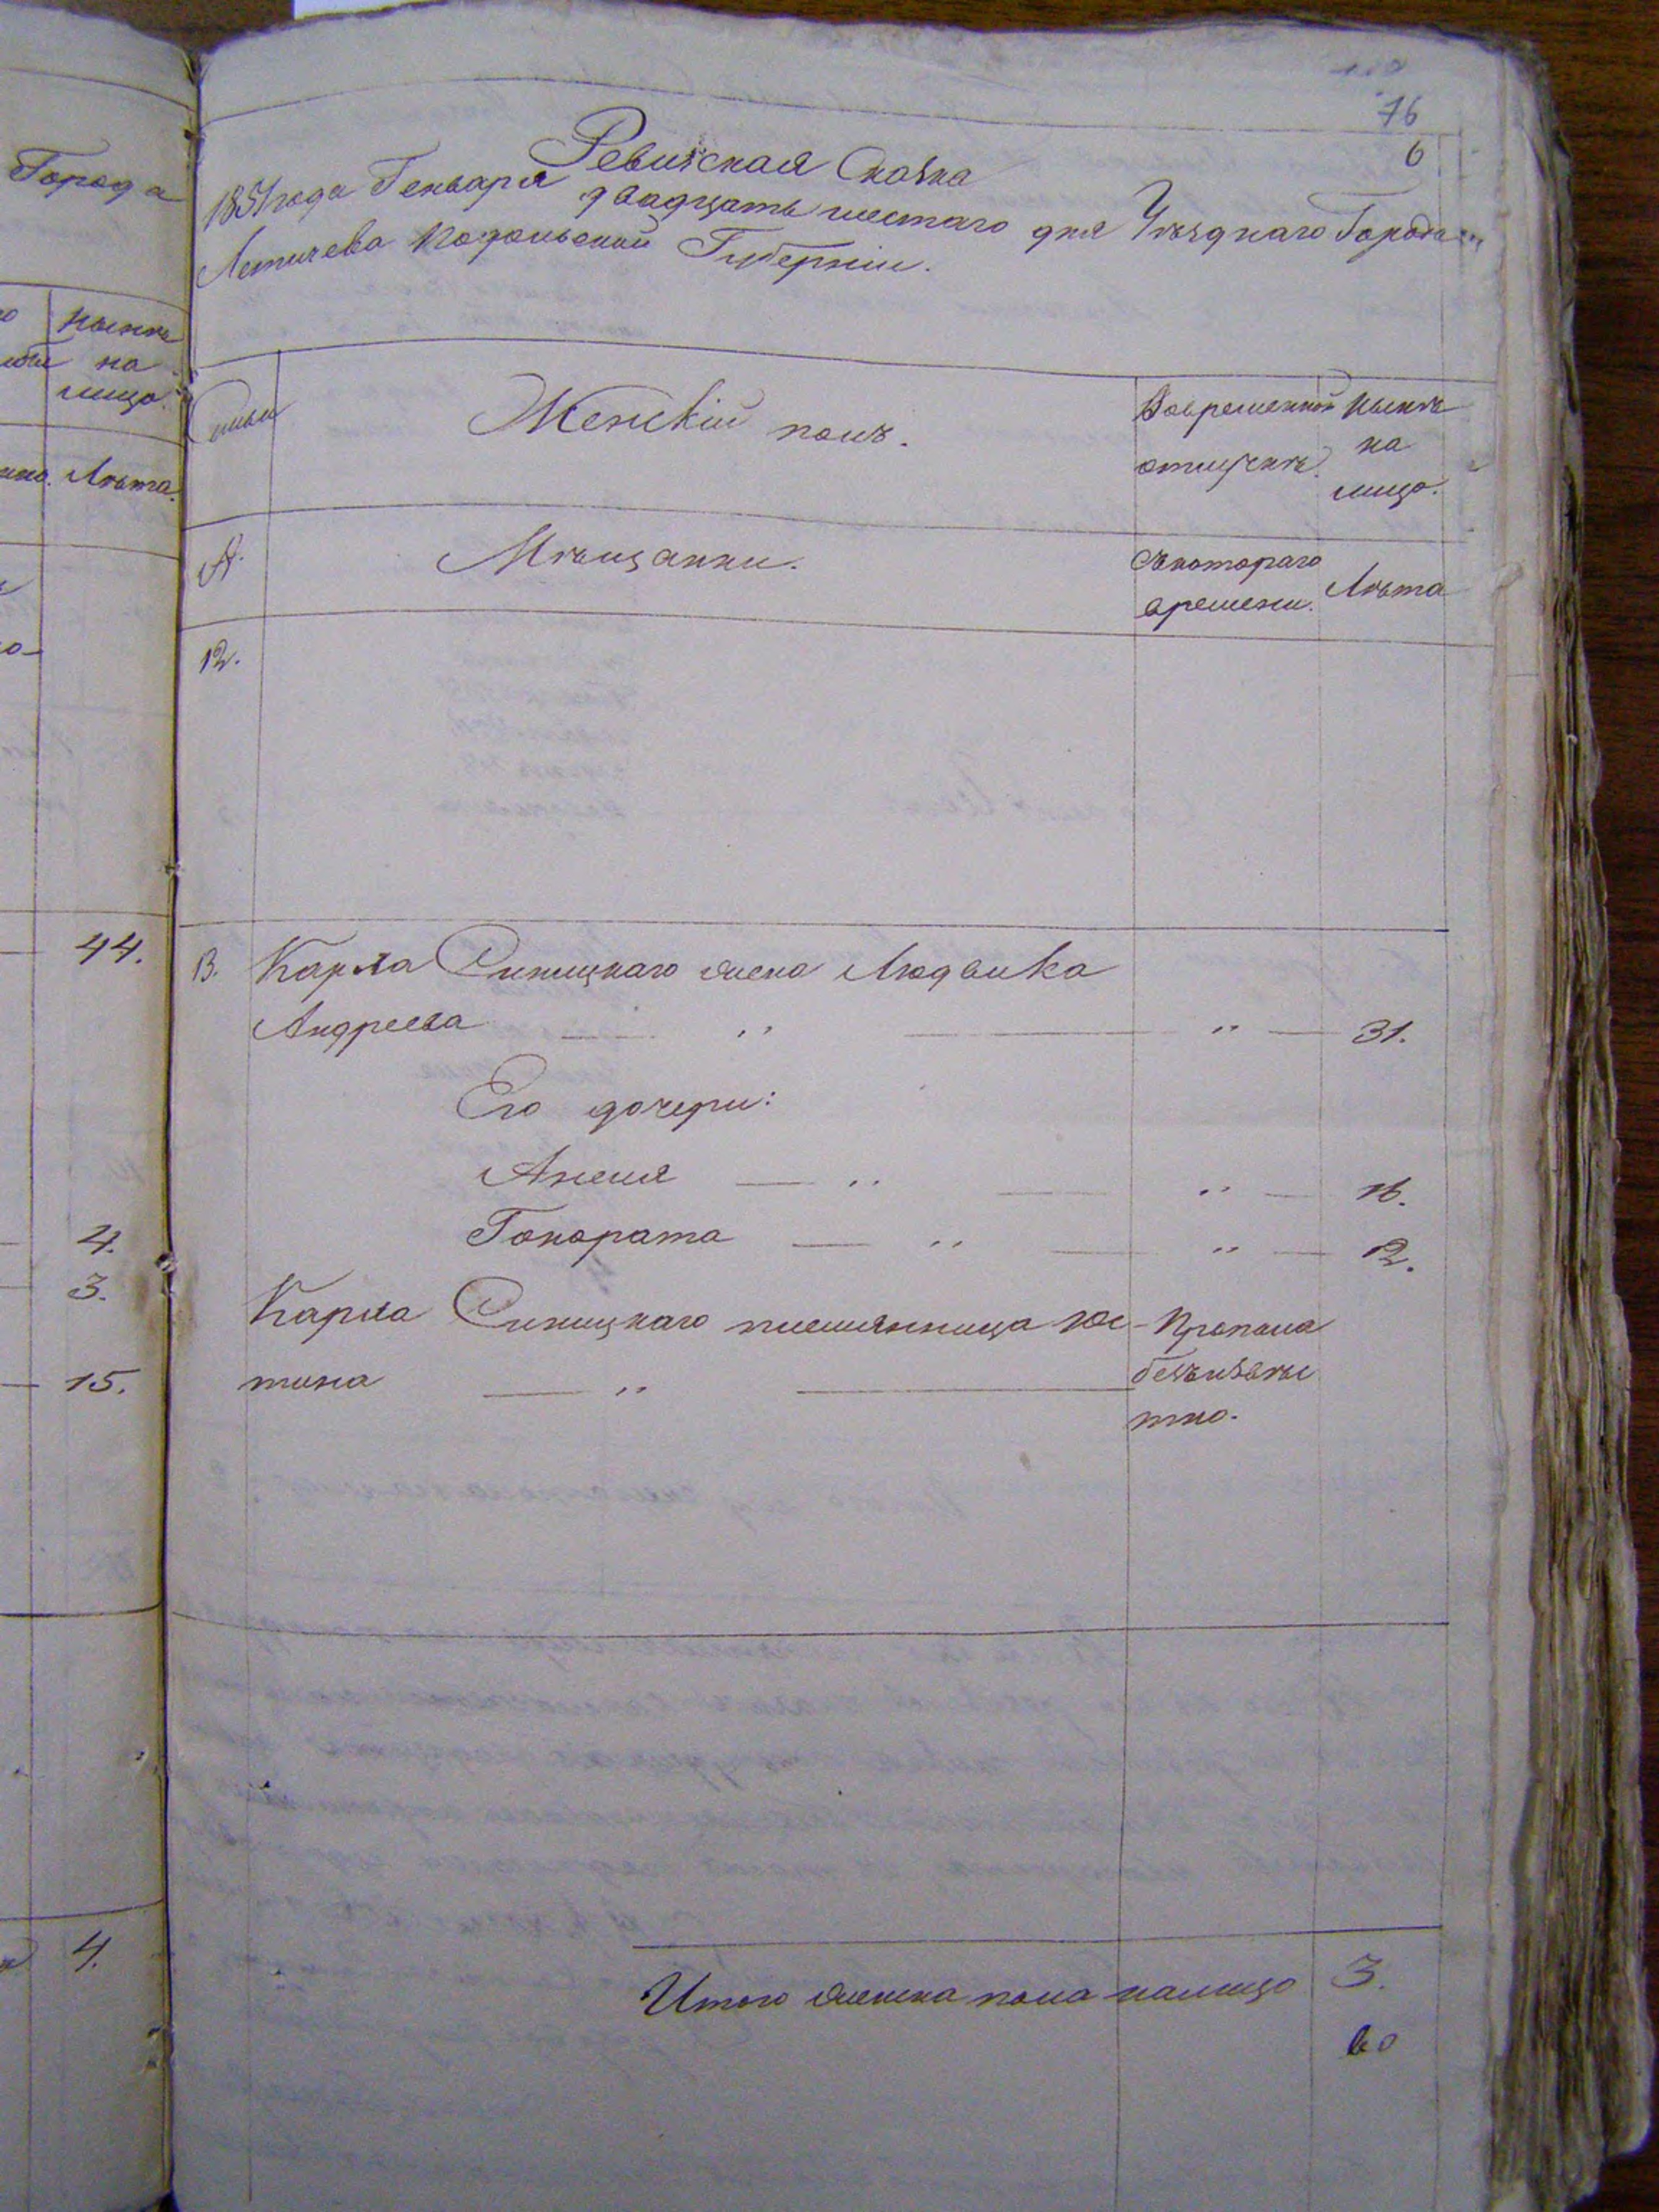 Города
Нынѣ
на
лицо
Лѣта.
44.
4.
3.
15.
4.
76
6
Ревизская Сказка
1851 года Генваря двадцать шестаго дня Уѣзднаго Города
Летичева Подольской Губерніи.
Женскій полъ.
Вовременной
отлучкѣ.
Нынѣ
на
лицо.
№.
Мѣщанки.
Съкотораго
времени.
Лѣта
12.
13. Карла Синицкаго жена Людвика
Андреева — " — " — 31.
Его дочери:
Анеля — " — " — 16.
Гонората — " — " — 12.
Карла Синицкаго племянница Юс-
тина — " —
Пропала
безъизвѣс
тно.
Итого женска пола налицо 3.